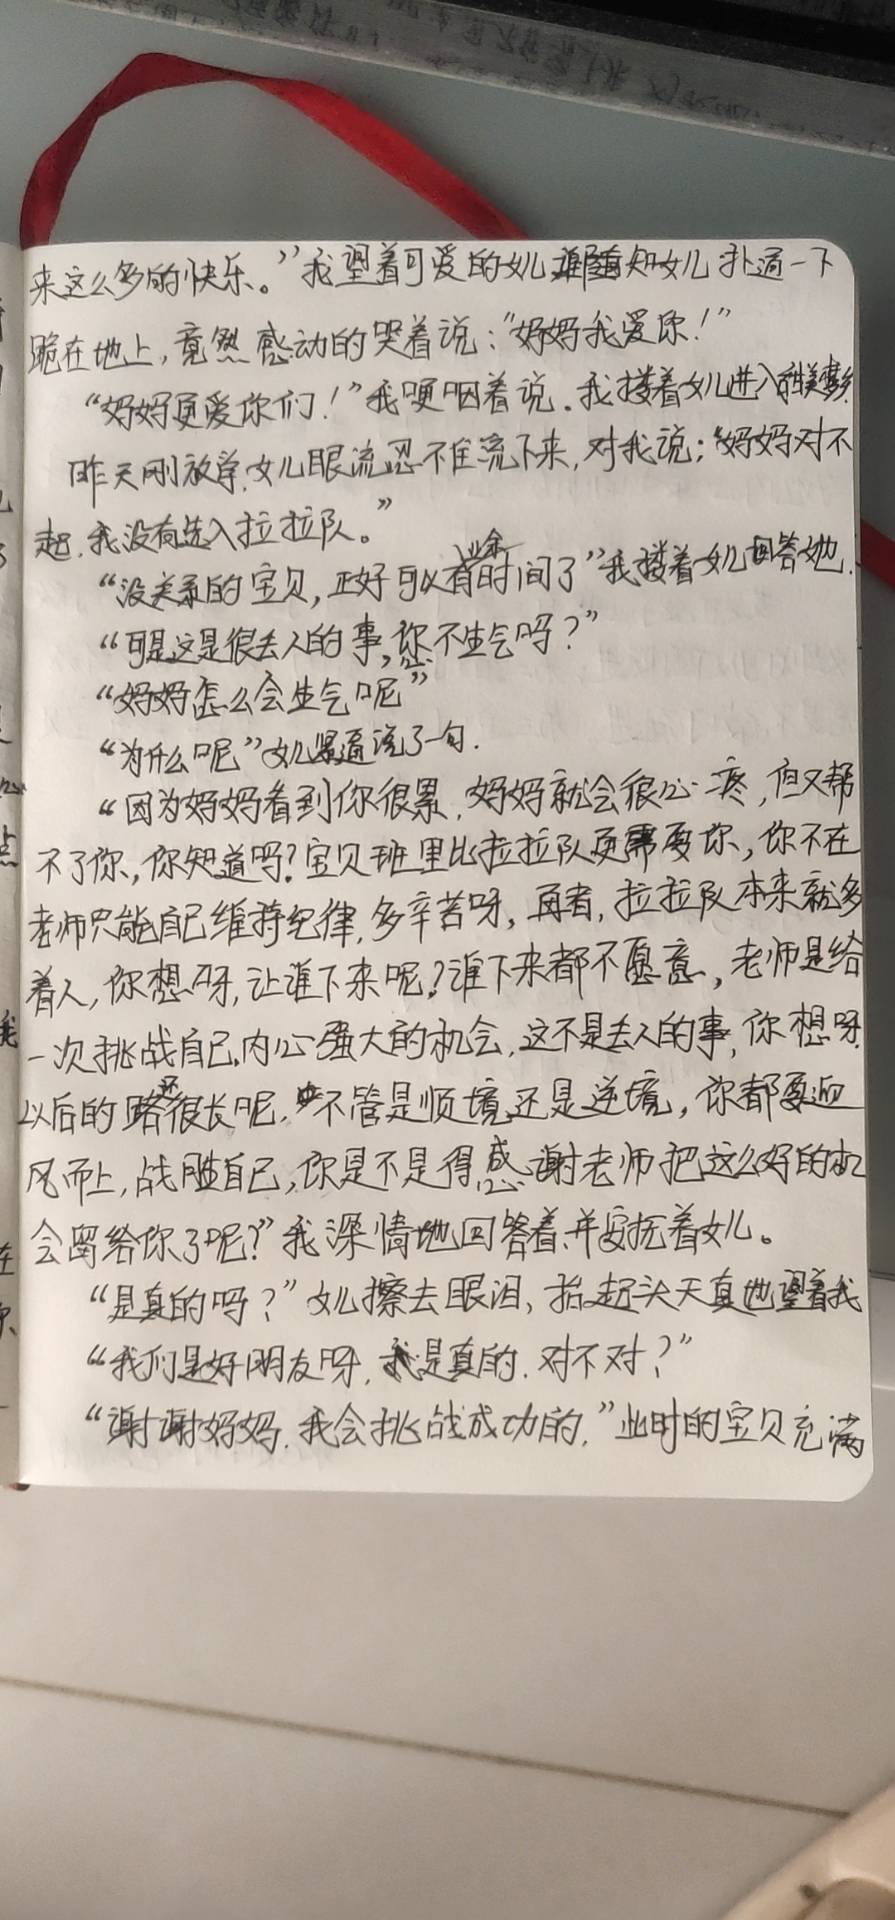 来这么多的快乐。”我望着可爱的女儿,那随知女儿扑通一下
跪在地上，竟然感动的哭着说：“妈妈我爱你！”
“妈妈更爱你们！”我哽咽着说。我搂着女儿进入甜美梦乡
昨天刚放学,女儿眼流忍不住流下来，对我说；“妈妈对不
起，我没有选入拉拉队。”
“没关系的宝贝，正好可以有业余时间了”我搂着女儿回答她.
“可是这是很丢人的事，您不生气吗？”
“妈妈怎么会生气呢”
“为什么呢”女儿紧逼说了一句.
“因为妈妈看到你很累，妈妈就会很心疼，但又帮
不了你，你知道吗？宝贝班里比拉拉队更需要你，你不在
老师只能自己维持纪律，多辛苦呀，再者，拉拉队本来就多
着人，你想呀，让谁下来呢？谁下来都不愿意，老师是给
一次挑战自己,内心强大的机会，这不是丢人的事，你想呀，
以后的路还很长呢，不管是顺境还是逆境，你都要迎
风而上，战胜自己，你是不是得感谢老师把这么好的机
会留给你了呢？”我深情地回答着，并安抚着女儿。
“是真的吗？”女儿擦去眼泪，抬起头天真地望着我
“我们是好朋友呀，我是真的，对不对？”
“谢谢妈妈，我会挑战成功的，”此时的宝贝充满